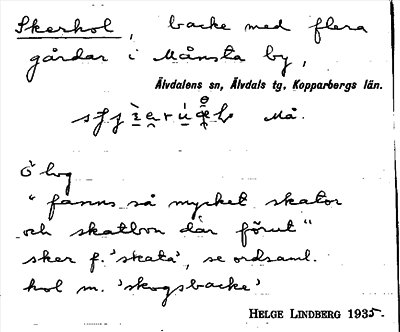 Skerhol, backe med flera
gårdar i Månsta by,
Älvdalens sn, Älvdals tg, Kopparbergs län.
Må.
"fanns så mycket skator
och skatbon där förut"
sker f. 'skata', se ordsaml.
hol m. 'skogsbacke'
HELGE LINDBERG 1935.